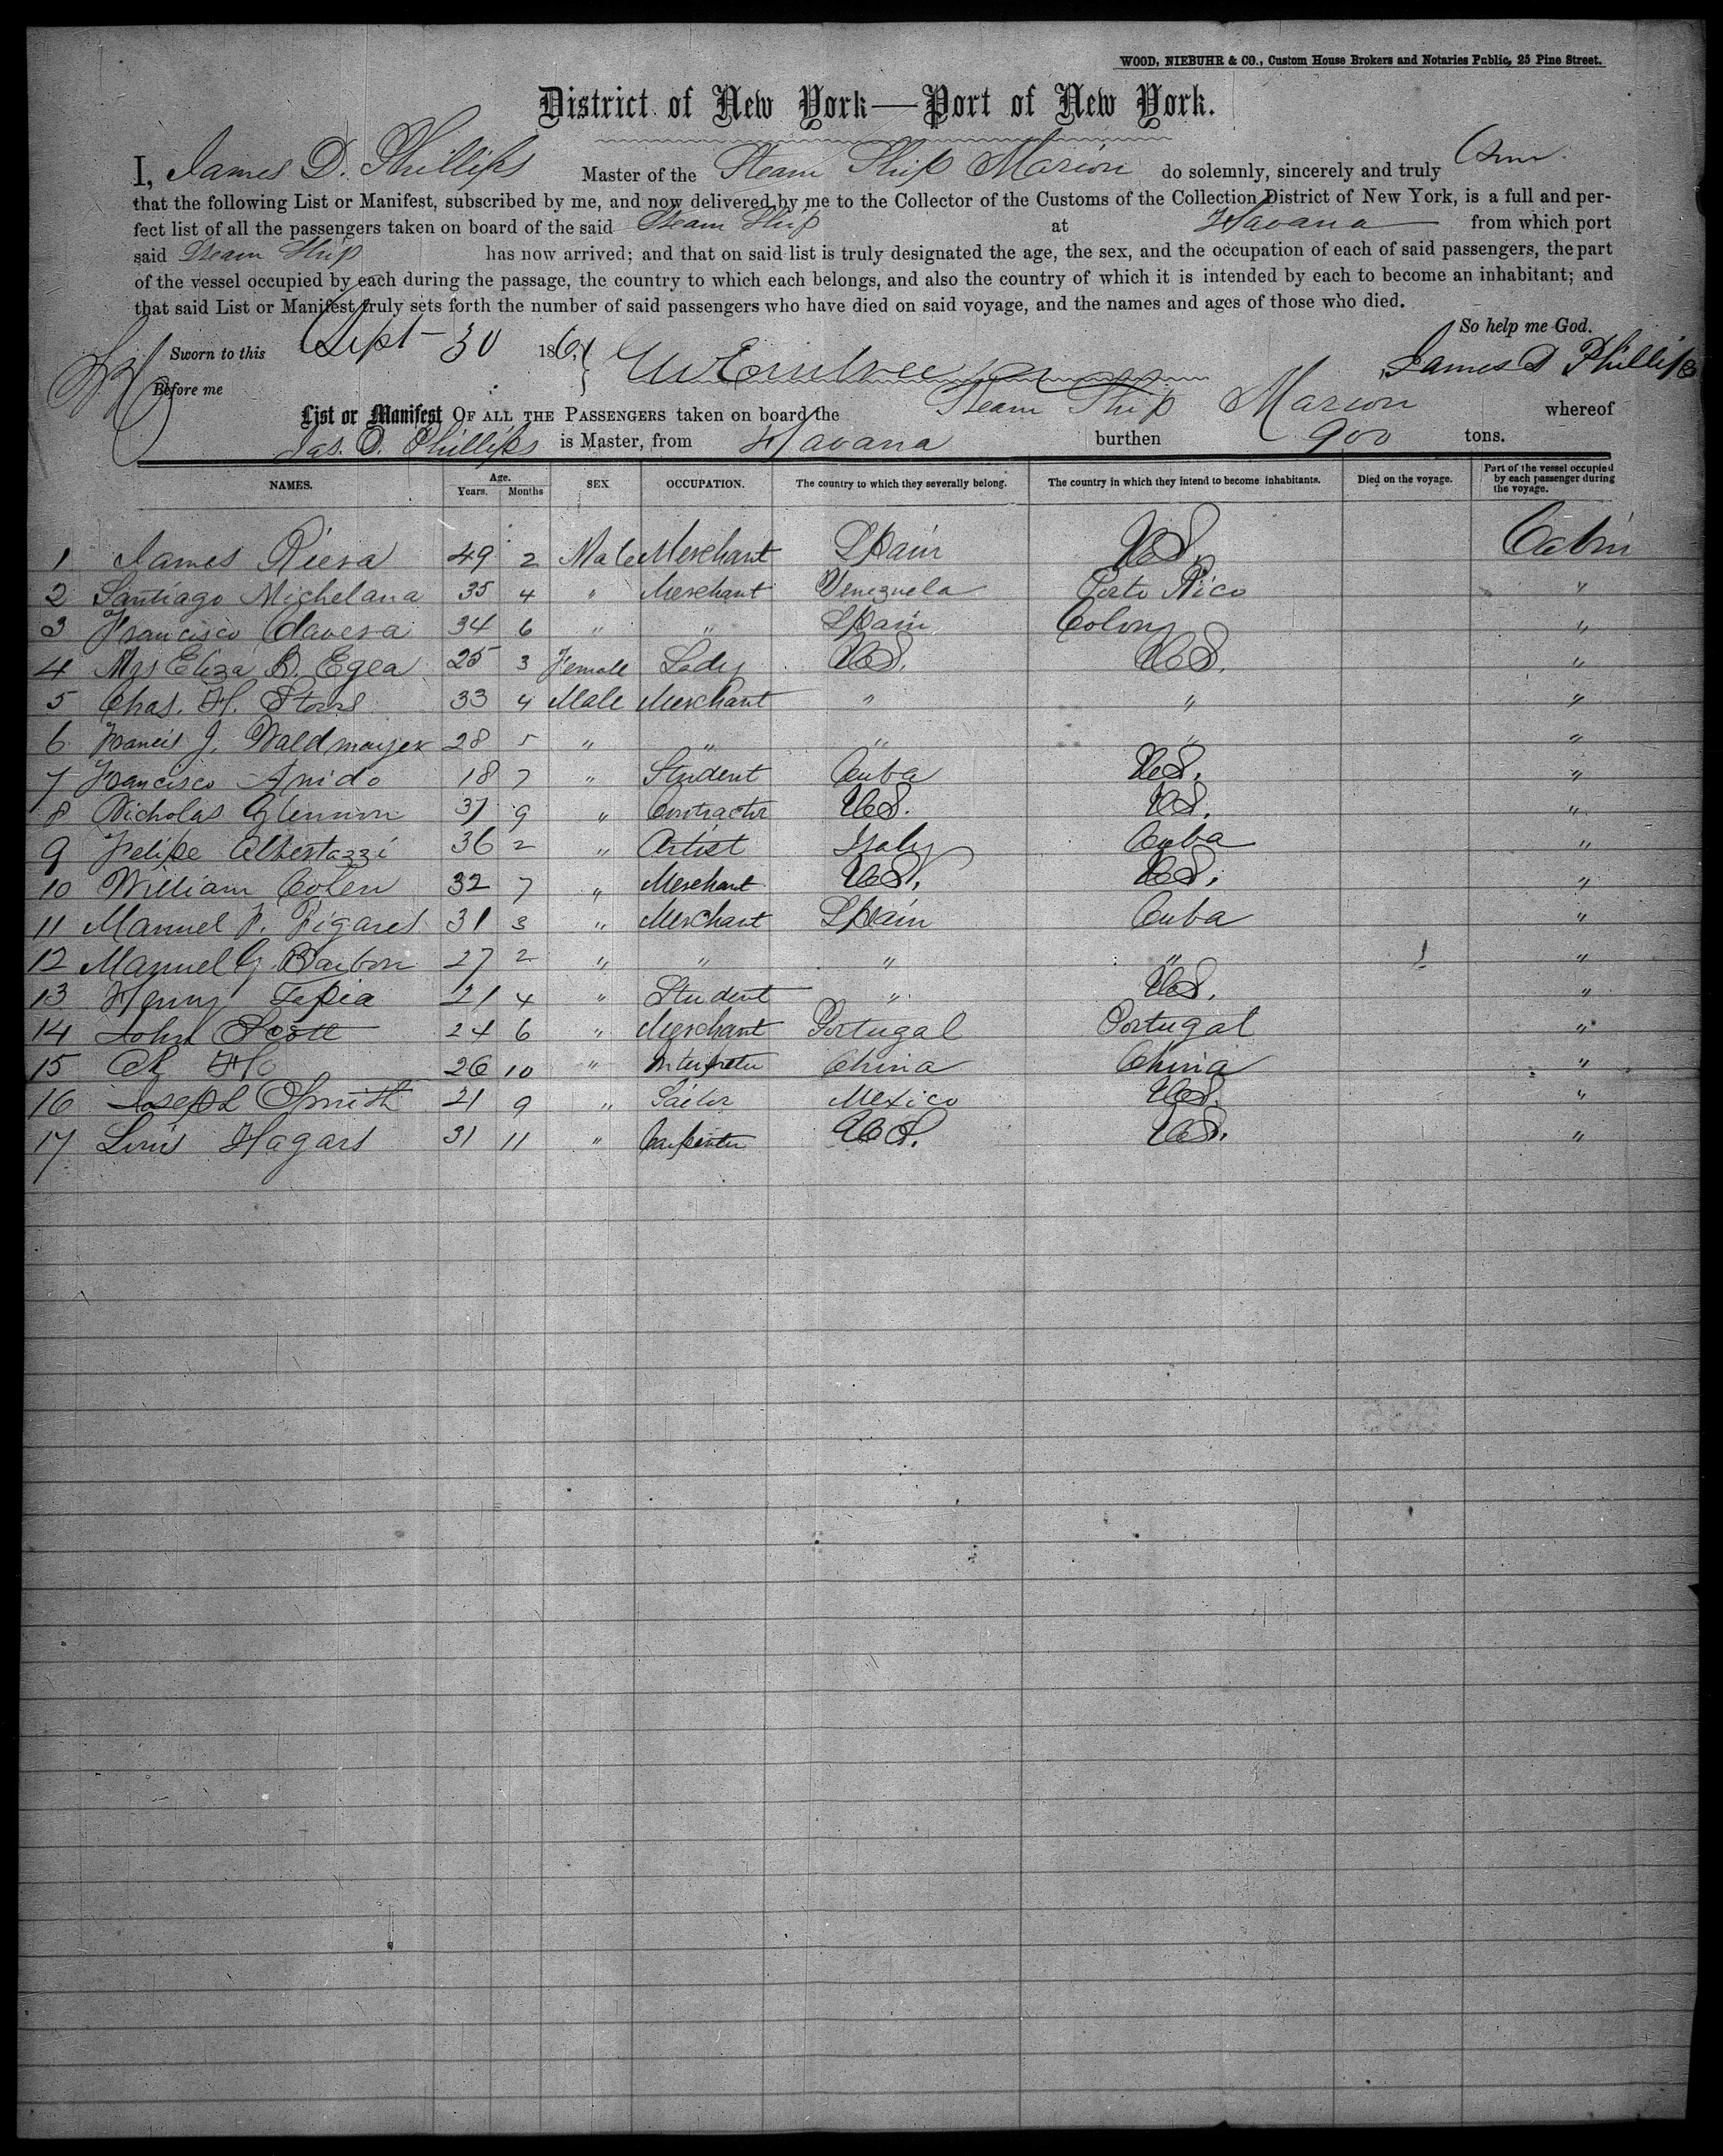 WOOD, NIEBUHR & CO., Custom House Brokers and Notaries Public, 25 Pine Street.
District of New York—Port of New York.
I, James D. Phillips Master of the Steam Ship Marion do solemnly, sincerely and truly
that the following List or Manifest, subscribed by me, and now delivered by me to the Collector of the Customs of the Collection District of New York, is a full and per-
fect list of all the passengers taken on board of the said Steam Ship at Havana from which port
said Steam Ship has now arrived; and that on said list is truly designated the age, the sex, and the occupation of each of said passengers, the part
of the vessel occupied by each during the passage, the country to which each belongs, and also the country of which it is intended by each to become an inhabitant; and
that said List or Manifest truly sets forth the number of said passengers who have died on said voyage, and the names and ages of those who died.
So help me God.
Sworn to this Sept 30 186 James D Phillips
Before me
List or Manifest OF ALL THE PASSENGERS taken on board the Steam Ship Marion whereof
Jas. D. Phillips is Master, from Havana burthen 900 tons.
NAMES. Age. Years. Months SEX OCCUPATION. The country to which they severally belong. The country in which they intend to become inhabitants. Died on the voyage. Part of the vessel occupied by each passenger during the voyage.
1 James Riera 49 2 Male Merchant Spain US. Cabin
2 Santiago Michelana 35 4 " Merchant Venezuela Porto Rico "
3 Francisco Clavera 34 6 " " Spain Colony "
4 Mrs Eliza B. Egea 25 3 Female Lady US. US. "
5 Chas. H. Storrs 33 4 Male Merchant " " "
6 Francis J. Waldmayer 28 5 " " " " "
7 Francisco Anido 18 7 " Student Cuba US. "
8 Nicholas Glennon 37 9 " Contractor US. US. "
9 Felipe Albertazzi 36 2 " Artist Italy Cuba "
10 William Cohen 32 7 " Merchant US. US. "
11 Manuel F. Figares 31 3 " Merchant Spain Cuba "
12 Manuel G Barbon 27 2 " " " " "
13 Henry Tapia 21 4 " Student " US. "
14 John Scott 24 6 " Merchant Portugal Portugal "
15 Ho 26 10 " Interpreter China China "
16 Joseph Smith 21 9 " Sailor Mexico US. "
17 Louis Hagars 31 11 " Carpenter US. US. "